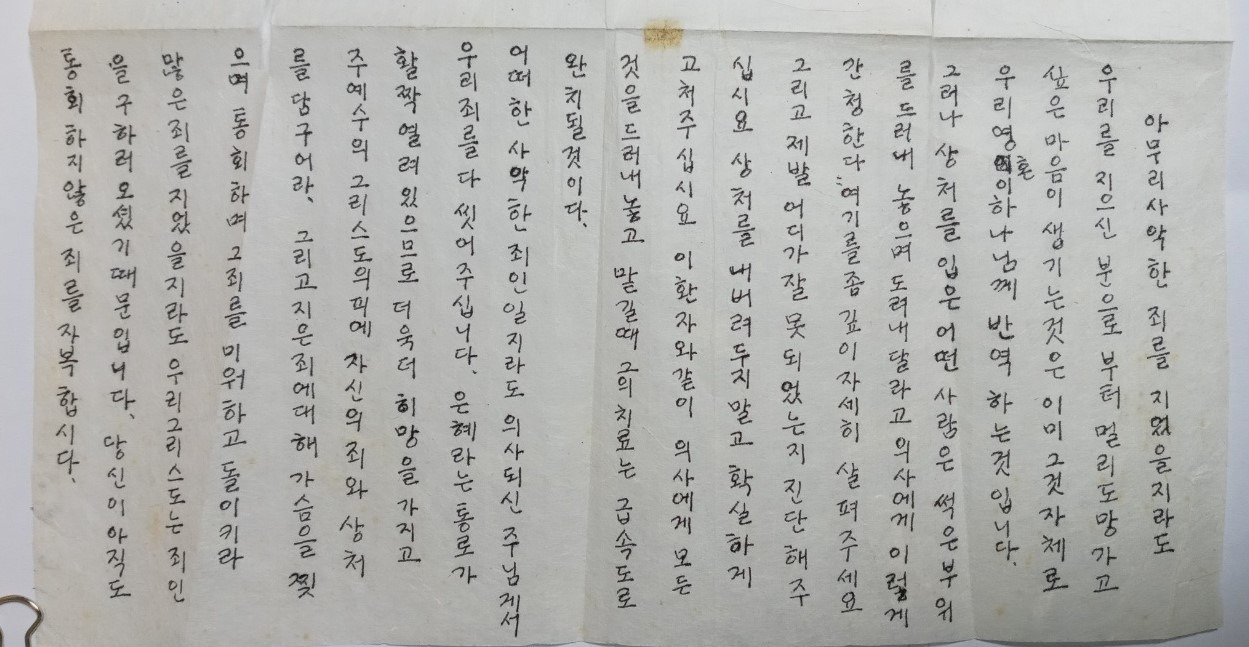 아무리 사악한 죄를 지었을지라도
우리를 지으신 분으로 부터 멀리도망가고
싶은 마음이 생기는것은 이미 그것 자체로
우리영혼이하나님께 반역 하는것 입니다.
그러나 상처를 입은 어떤 사람은 썩은부위
를 드러내 놓으며 도려내달라고 의사에게 이렇게
간청한다 여기를좀 깊이자세히 살펴주세요
그리고 제발 어디가잘못되었는지 진단해주
십시요 상처를 내버려두지말고 확실하게
고쳐주십시요 이환자와같이 의사에게 모든
것을드러내놓고 맡길때 그의치료는 급속도로
완치될것이다.
어떠한 사악한죄인일지라도 의사되신 주님게서
우리죄를다 씻어주십니다. 은혜라는통로가
활짝열려있으므로 더욱더 히망을가지고
주예수의그리스도의피에 자신의죄와 상처
를담구어라. 그리고지은죄에대해 가슴을찢
으며 통회하며 그죄를미워하고 돌이키라
많은죄를지었을지라도 우리그리스도는죄인
을구하러오셨기때문입니다. 당신이아직도
통회하지않은 죄를자복합시다.